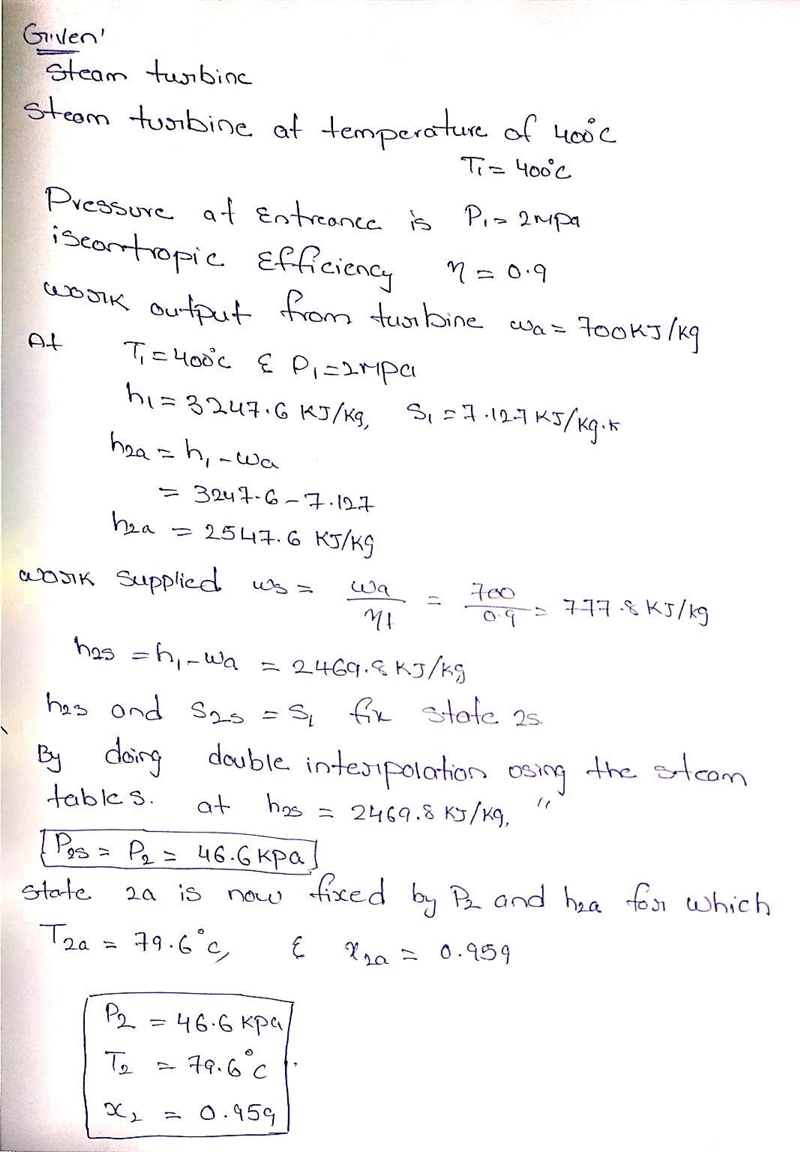 Given'
Steam turbine
Steam turbine at temperature of 400°C
T₁ = 400°C
Pressure at Entreance is P₁ = 2MPa
iseontropic Efficiency η = 0.9
work output from turbine wa = 700KJ/kg
At T₁ = 400°C & P₁ = 2MPa
h₁ = 3247.6 KJ/kg, S₁ = 7.127 KJ/kg.k
h2a = h₁ - wa
= 3247.6 - 7.127
h2a = 2547.6 KJ/kg
work supplied ws = wa/ηt = 700/0.9 = 777.8 KJ/kg
h2s = h₁ - wa = 2469.8 KJ/kg
h2s and S2s = S₁ fix state 2s.
By doing double interpolation using the steam
tables. at h2s = 2469.8 KJ/kg, "
P2s = P₂ = 46.6 KPa
state 2a is now fixed by P₂ and h2a for which
T2a = 79.6°C, & x2a = 0.959
P₂ = 46.6 KPa
T₂ = 79.6°C .
x₂ = 0.959